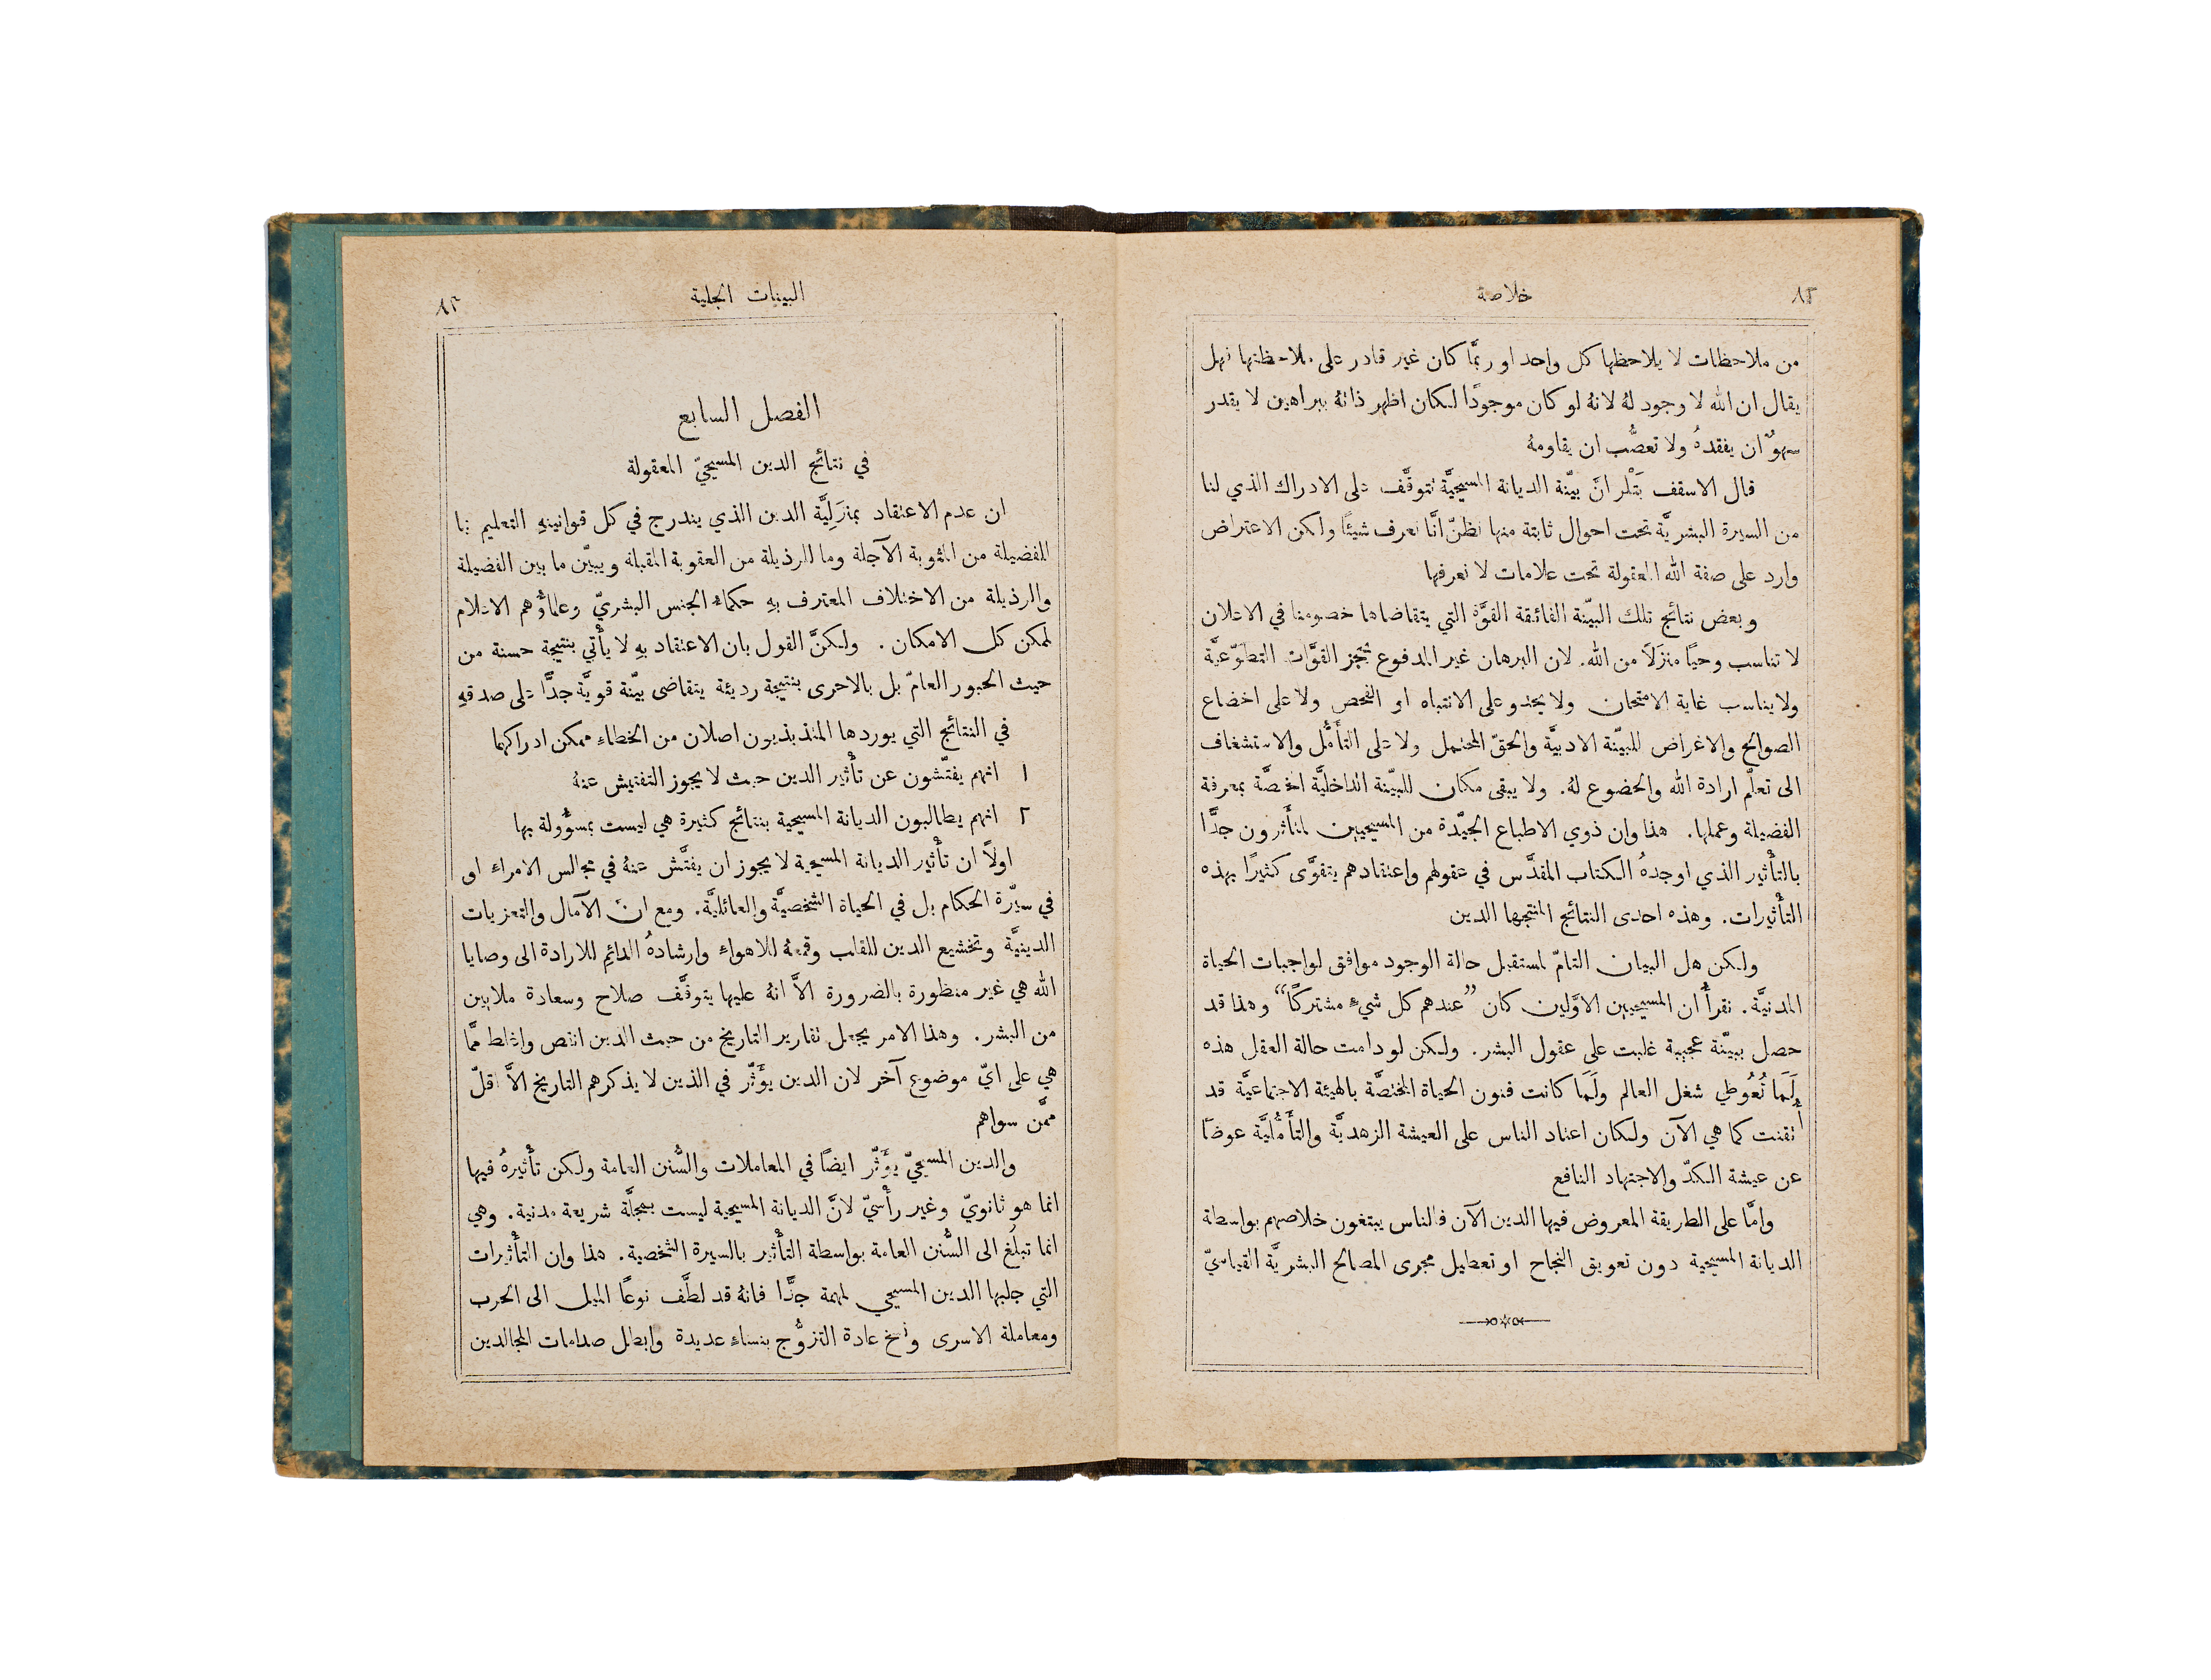 ٨٢
خلاصة
من ملاحظات لا يلاحظها كل واحد او ربمَّا كان غير قادر على ملاحظتها فهل
يقال ان الله لا وجود لهُ لانهُ لو كان موجودًا لكان اظهر ذاتهُ ببراهين لا يقدر
سهوٌ ان يفقدهُ ولا تعصُّب ان يقاومهُ
قال الاسقف بَتْلر انَّ بيّنة الديانة المسيحيَّة تتوقَّف على الادراك الذي لنا
من السيرة البشريَّة تحت احوال ثابتة منها نظنّ انَّا نعرف شيئًا ولكن الاعتراض
وارد على صفة الله المعقولة تحت علامات لا نعرفها
وبعض نتائج تلك البيّنة الفائقة القوَّة التي يتقاضاها خصومنا في الاعلان
لا تناسب وحيًا منزَلاً من الله. لان البرهان غير المدفوع تحجز القوَّات التطوّعيَّة
ولا يناسب غاية الامتحان ولا يحدو على الانتباه او الفحص ولا على اخضاع
الصوالح والاغراض للبيّنة الادبيَّة والحقّ المحتمل ولا على التأَمُّل والاستشغاف
الى تعلّم ارادة الله والخضوع لهُ. ولا يبقى مكان للبيّنة الداخليَّة المختصَّة بمعرفة
الفضيلة وعملها. هذا وان ذوي الاطباع الجيّدة من المسيحيين لمتأثرون جدًّا
بالتأْثير الذي اوجدهُ الكتاب المقدَّس في عقولهم واعتقادهم يتقوَّى كثيرًا بهذه
التأْثيرات. وهذه احدى النتائج المنتجها الدين
ولكن هل البيان التامّ لمستقبل حالة الوجود موافق لواجبات الحياة
المدنيَّة. نقرأُ ان المسيحيين الاوَّلين كان ”عندهم كل شيءٍ مشتركًا“ وهذا قد
حصل ببيّنة عجيبة غلبت على عقول البشر. ولكن لو دامت حالة العقل هذه
لَمَا تُعُوطي شغل العالم ولَمَا كانت فنون الحياة المختصَّة بالهيئة الاجتماعيَّة قد
أُتقنت كما هي الآن ولكان اعتاد الناس على العيشة الزهديَّة والتأَمُّليَّة عوضًا
عن عيشة الكدّ والاجتهاد النافع
وامَّا على الطريقة المعروض فيها الدين الآن فالناس يبتغون خلاصهم بواسطة
الديانة المسيحية دون تعويق النجاح او تعطيل مجرى المصالح البشريَّة القياسيّ
البينات الجلية
٨٣
الفصل السابع
في نتائج الدين المسيحيّ المعقولة
ان عدم الاعتقاد بمنزَلِيَّة الدين الذي يندرج في كل قوانينهِ التعليم بما
للفضيلة من المثوبة الآجلة وما للرذيلة من العقوبة المقبلة ويبيّن ما بين الفضيلة
والرذيلة من الاختلاف المعترف بهِ حكماءُ الجنس البشريّ وعلماؤُهم الاعلام
لممكن كل الامكان. ولكنَّ القول بان الاعتقاد بهِ لا يأْتي بنتيجة حسنة من
حيث الحبور العامّ بل بالاحرى بنتيجة رديئة يتقاضى بيّنة قويَّة جدًّا على صدقهِ
في النتائج التي يوردها المتذبذبون اصلان من الخطاءِ ممكن ادراكهما
١ انهم يفتّشون عن تأْثير الدين حيث لا يجوز التفتيش عنهُ
٢ انهم يطالبون الديانة المسيحية بنتائج كثيرة هي ليست بمسؤُولة بها
اولاً ان تأْثير الديانة المسيحية لا يجوز ان يفتَّش عنهُ في مجالس الامراءِ او
في سيّرة الحكام بل في الحياة الشخصيَّة والعائليَّة. ومع انَّ الآمال والتعزيات
الدينيَّة وتخشيع الدين للقلب وقمعهُ للاهواءِ وارشادهُ الدائم للارادة الى وصايا
الله هي غير منظورة بالضرورة الاَّ انهُ عليها يتوقَّف صلاح وسعادة ملايين
من البشر. وهذا الامر يجعل تقارير التاريخ من حيث الدين انقص واغلط ممَّا
هي على ايّ موضوع آخر لان الدين يؤَثّر في الذين لا يذكرهم التاريخ الاَّ اقلّ
ممَّن سواهم
والدين المسيحيّ يؤَثّر ايضًا في المعاملات والسُّنن العامة ولكن تأْثيرهُ فيها
انما هو ثانويّ وغير رأْسيّ لانَّ الديانة المسيحية ليست بمجلَّة شريعة مدنية. وهي
انما تبلُغ الى السُّنن العامة بواسطة التأْثير بالسيرة الشخصية. هذا وان التأْثيرات
التي جلبها الدين المسيحي لمهمة جدًّا فانهُ قد لطَّف نوعًا الميل الى الحرب
ومعاملة الاسرى ونسخ عادة التزوُّج بنساءٍ عديدة وابطل صدامات المجالدين